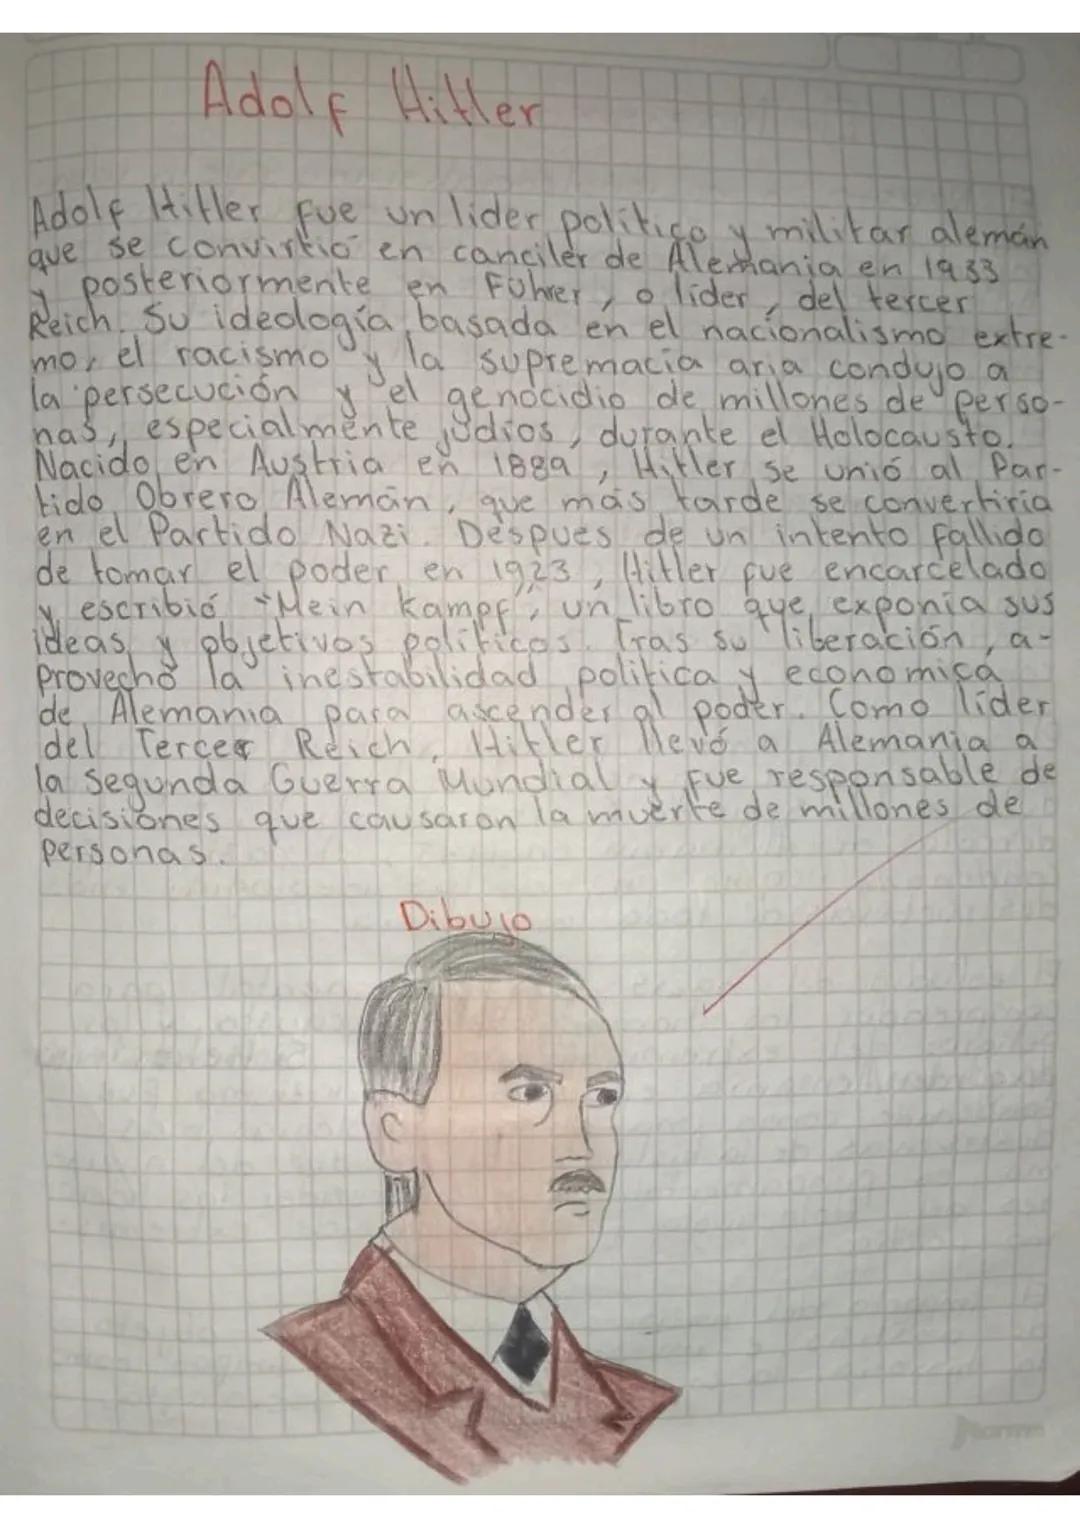 Adolf Hitler
Adolf Hitler fue un lider politico y militar alemán
que se convirtió en canciler de Alemania en 1933
y posteriormente en Führer, o lider, del tercer
Reich. Su ideología, basada en el nacionalismo extre-
mo, el racismo y la supremacia aria condujo a
la persecución y el genocidio de millones de perso-
nas, especialmente judios, durante el Holocausto.
Nacido en Austria en 1889, Hitler se unió al Par-
tido Obrero Alemán, que más tarde se convertiria
en el Partido Nazi. Despues de un intento fallido
de tomar el poder en 1923, Hitler fue encarcelado
y escribió "Mein Kampf", un libro que exponia sus
ideas y objetivos politicos. Tras su liberación, a-
provechó la inestabilidad politica y economica
de Alemania para ascender al poder. Como lider
del Tercer Reich, Hitler llevó a Alemania a
la Segunda Guerra Mundial y fue responsable de
decisiones que causaron la muerte de millones de
personas.
Dibujo
Norma